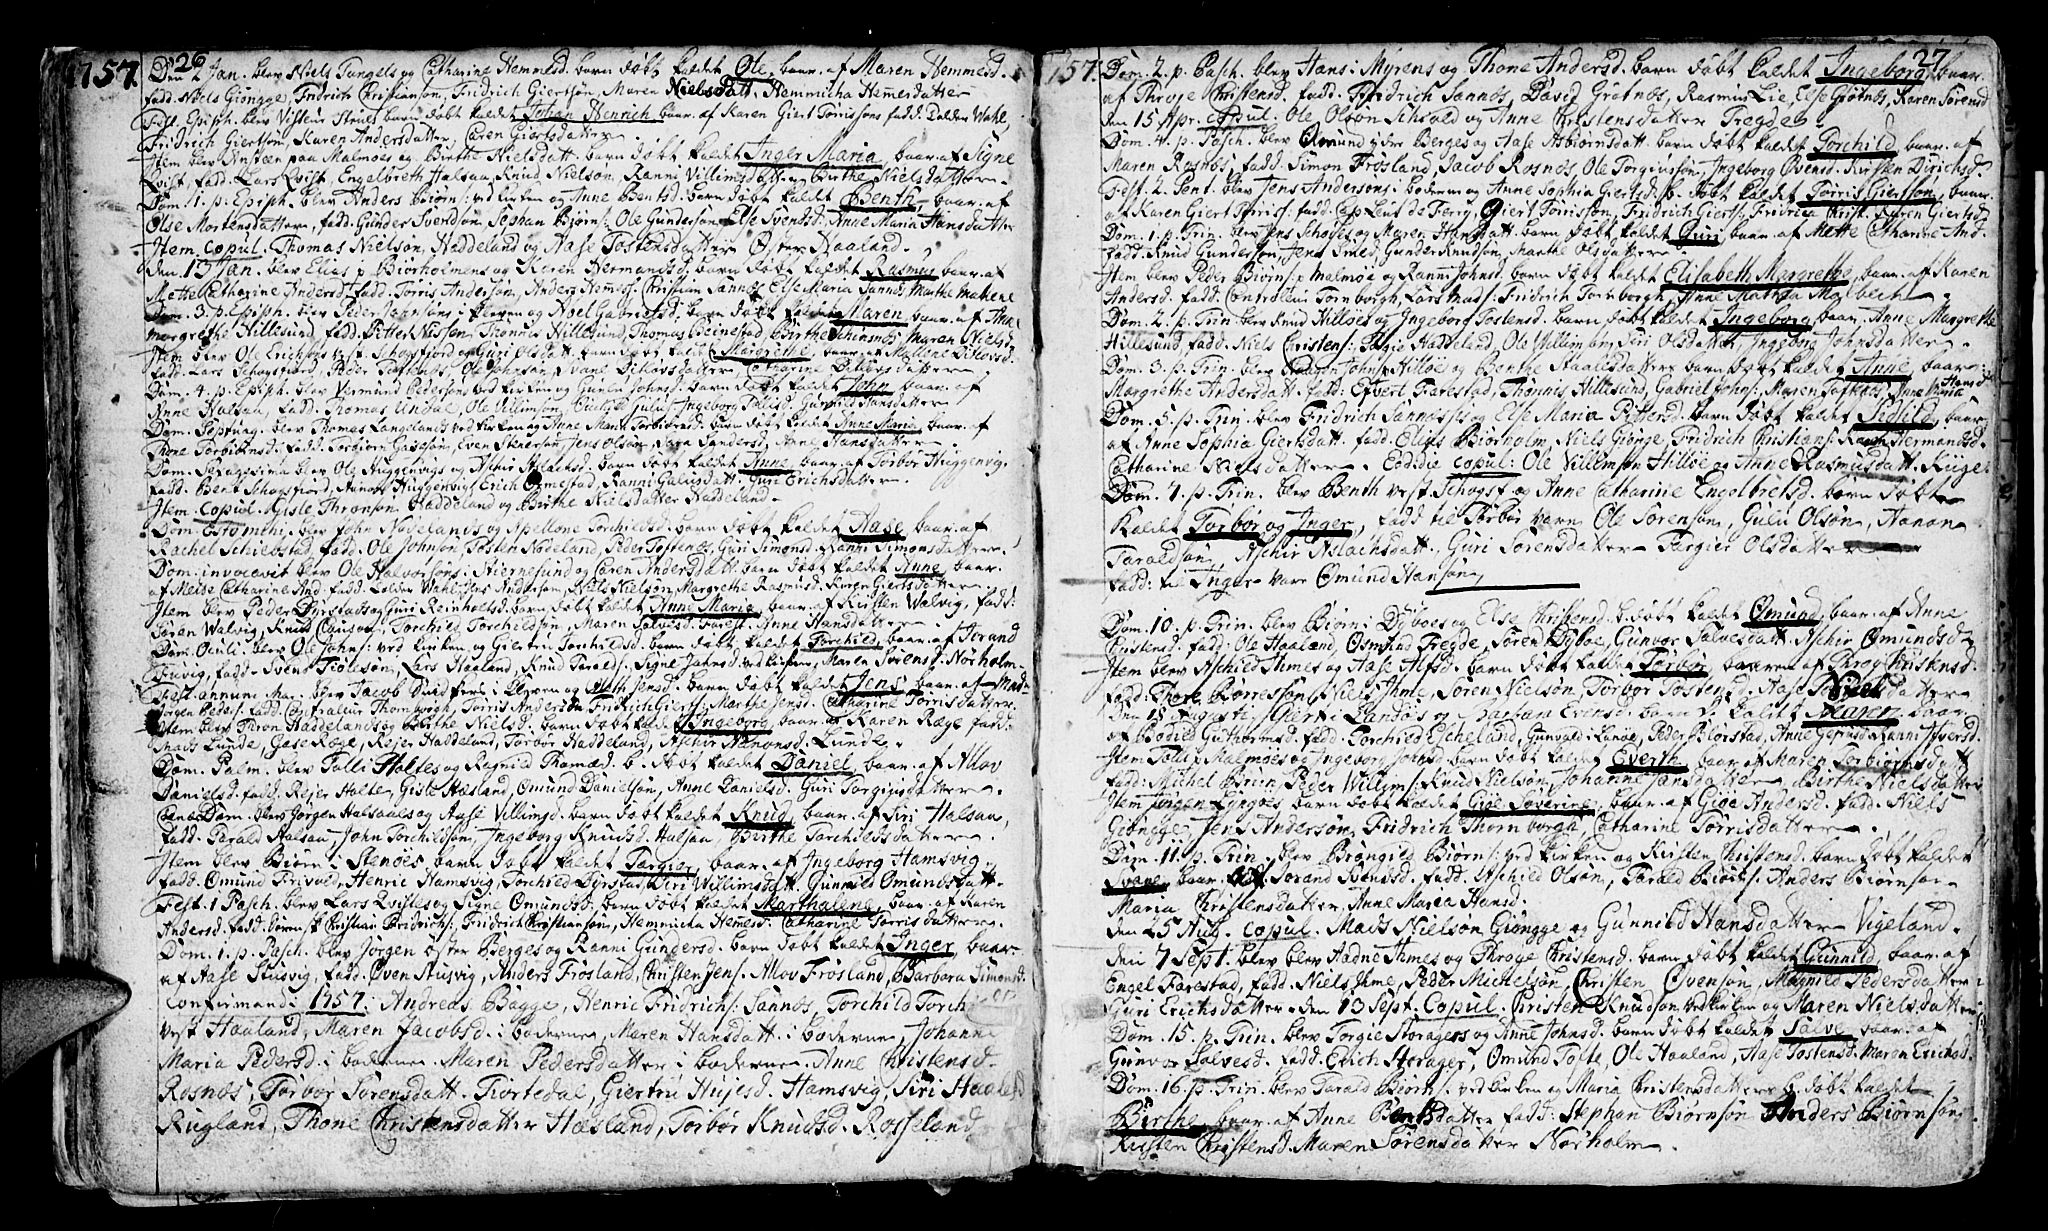 1757.
26
Den 2 Jan. blev Niels Tangels og Catharine Hemmesd. barn døbt kaldet Ole, baar. af Maren Hemmesd.
fadd. Niels Giøngge, Fridrich Christiansøn, Fridrich Giertsøn, Maren Nielsdatt. Hemmicha Hemesdatter
Fest. Epiph. blev barn døbt kaldet Johan Henrich baar. af Karen Giert Torrissøns fadd. Wahl,
Fridrich Giertsøn, Karen Andersdatter, Caren Giertsdatter.
Item blev Ansteen paa Malmøe og Birthe Nielsdatt. barn døbt kaldet Inger Maria, baar. af Signe
Qvist, fadd. Lars Qvist, Engelbreth Halsaa, Knud Nielsøn, Ranni Villumsdatter, Birthe Nielsdatter
Dom. 1. p. Epiph. blev Anders Biørns: ved Kirken og Anne Bentsd. barn døbt kaldet Benth, baar. af
Olse Mortensdatter, fadd. Gunder Svendsøn, Stephan Biørns: Ole Gundersøn, Else Svensd: Anne Maria Hansdatter
Item Copul. Thomas Nielsøn, Haddeland og Aase Tostensdatter Øster Haaland.
Den 13 Jan. blev Elias p Biørholmen og Karen Hermansd. barn døbt kaldet Rasmus baar. af
Mette Catharine Andersd. fadd. Torris Andersøn, Anders Hemess: Christian Sannøs, Else Maria Sannøs, Marthe Malene
Dom. 3. p. Epiph. blev Peder Joensøns i Kleven og Abel Gabrielsd. barn døbt kaldet Maren baar. af Anne
Margrethe Hillesund, fadd. Petter Nissen, Thonnes Hillesund, Thomas Reinestad, Birthe Maren Nielsd.
Item blev Ole Erichsøns vest. Schogsfiord og Guri Olsdatt. barn døbt kaldet Margrethe, baar. af Mallene Ditlovsd.
fadd. Lars Schogsfiord, Peder Toftenes, Ole Johnsøn, Svane Ditlovsdatter, Catharine Ditlovsdatter
Dom. 4. p. Epiph. blev Vermund Pedersøns ved Kirken og Gunild Johnsd. barn døbt kaldet John baar. af
Anne Halsaa, fadd. Thomas Undal, Ole Villumsøn, Ingeborg Gunild Hansdatter
Dom. Septuag. blev Thomas Langelands ved Kirken og Anne Maria Torbiørnsd. barn døbt kaldet Anne Maria baar. af
Thone Torbiønsd. fadd. Torbiørn Even Jens Olsøn, Sara Sandersd, Anne Hansdatter.
Dom. Sexagesima blev Ole Huggenvigs og Aschir Aslachsd. barn døbt kaldet Anne baar. af Torbør Huggenvig,
fadd. Bent Schogsfiord, Aanon Huggenvig, Erich Ormestad, Ranni Gulusdatt: Guri Erichsdatter.
Item. Copul. Aisle Thronsøn Haddeland og Birthe Nielsdatter Haddeland.
Dom. Estomihi. blev John Nødelands og Apellone Torchildsd. barn døbt kaldet Aase baar. af
Rachel Schiebstad, fadd. Ole Johnsøn, Tosten Nødeland, Peder Toftenes, Guri Simonsd. Ranni Simonsdatter.
Dom: invocavit blev Ole Halvørsøns: Hiernesund og Caren Andersdatt. barn døbt kaldet Anne, baar.
af Mette Catharine And. fadd. Wahl, Jens Andersøn, Niels Nielsøn, Margrethe Rasmusd. Karen Giertsdatter.
Item blev Peder Dyrstads og Guri Reinholtsd. barn døbt kaldet Anne Maria baar. af Kirsten Walvig, fadd:
Søren Walvig, Knud Clausøn, Torchild Torchildsøn, Maren Farest. Anne Hansdatter.
Dom. Oculi. blev Ole Johns: ved Kirken og Giertru Torchildsd. barn døbt kaldet Torchild, baar. af Jorand
Tuvig, fadd. Svend Lars Haaland, Knud Tarald: Signe ved Kirken, Maren Sørensd. Nørholm
Fest. annunt. Mar. blev Jacob i Kleven og Jensd. barn døbt kaldet Jens baar. af Mad.
Jørgen Peders: fadd. Thornborgh, Torris Andersøn Fridrich Giert: Marthe Jensd. Catharine Torrisdatter.
Item blev Haddelands og Birthe Nielsd. barn døbt kaldet Ingeborg baar. af Karen Røge fadd.
Mads Lunde, Gase Røge, Reier Haddeland, Torbør Haddeland, Aschir Aanonsd. Lunde.
Dom. Palm. blev Tolli Holtes og Ragnild Thomæd. b. døbt kaldet Daniel, baar. af Allov
Danielsd. fadd. Rejer Holte, Giste Hæsland, Omund Danielsøn, Anne Danielsd. Guri Torgiusdatter.
Cene. Dom. blev Jørgen Halsaaes og Aase Villumsd. barn døbt kaldet Knud baar. af Siri Halsaa,
fadd. Tarald Halsaa, John Torchildsøn, Ingeborg Knudsd. Halsaa, Birthe Torchildsdatter.
Item blev Biørn i Stenøes barn døbt kaldet Targier, baar. af Ingeborg Hamsvig
fadd. Omund Trivold, Henric Hamsvig, Torchild Dyrstad, Siri Willumsdatt. Gunnild Omundsdatt.
Fest. 1 Pasch. blev Lars Qvistes og Signe Omundsd. barn døbt kaldet Marthalene, baar. af Karen
Andersd. fadd. Søren p. Christian Fridrich: Fridrich Christiansøn, Hemmicha Hemesd. Catharine Torrisdatter.
Dom. 1. p. Pasch. blev Jørgen øster Berges og Ranni Gundersd. barn døbt kaldet Inger, baar.
af Aase Stusvig, fadd. Øven Stusvig, Anders Frøsland, Christen Jens: Allov Frøsland, Barbara Simonsd.
Confirmandi 1757: Andreas Bagge, Henric Fridrich: Sannøs, Torchild Torch
vest Haaland, Maren Jacobsd. i boderne, Maren Hansdatt. i boderne, Johanne
Maria Pedersd. i boderne, Maren Pedersdatter i boderne. Anne Christensd.
Rosnøs, Torbør Sørensdatt. Tiørtedal, Giertru Hujesd. Hamsvig, Siri
Rugland, Thone Christensdatter Hæsland, Torbør Knudsd. Rosseland
1757.
27
Dom. 2. p. Pasch. blev Hans i Myrens og Thone Andersd. barn døbt kaldet Ingeborg, baar.
af Throje Christensd. fadd. Fridrich Sannøs, David Grøtnøs, Rasmus Lie, Else Grøtnøs, Karen Sørensd
den 15 Apr. Copul. Ole Olsøn Schiold og Anne Christensdatter Tregde.
Dom. 4. p. Pasch. blev Omund yder Berges og Aase Asbiørnsdatt. barn døbt kaldet Torchild, baar. af
Maren Rosnøs, fadd. Simon Frøsland, Jacob Rosnøs, Ole Torgiusøn, Ingeborg Øvensd. Kirsten Dirichsd.
Fest. 2. Pent. blev Jens Andersøns i boderne og Anne Sophia Giertsd. b. døbt kaldet Torris Giertsøn, baar.
af Karen Giert Torriss: fadd. Cap. Leut. de Ferry, Giert Torrissøn, Fridrich Giert: Fridrica Christ. Karen Giertsd
Dom. 1. p. Trin. blev Jens Schoges og Maren Hansdatt. barn døbt kaldet Guri, baar. af Mette Catharine And.
fadd. Knud Gundersøn, Jens Smed, Gunder Knudsøn, Marthe Olsdatter.
Item blev Peder Biørns: p Malmøe og Ranni Johnsd. barn døbt kaldet Elisabeth Margrethe, baar. af Karen
Andersd. fadd. Controlleur Tornborgh, Lars Mads: Fridrich Tornborgh, Anne Mathia Molbech.
Dom. 2. p. Trin. blev Knud Hilløes og Ingeborg Tostensd. barn døbt kaldet Ingeborg baar. Anne Margrethe
Hillesund fadd. Niels Christens: Haddeland, Ole Villumsøn, Siri Olsdatter Ingeborg Johnsdatter.
Dom. 3. p. Trin. blev Johns: Hilløe og Benthe Staalesdatter barn døbt kaldet Anne, baar:
Margrethe Andersdatt. fadd: Efbert Farestad, Thønnis Hillesund, Gabriel Johns: Maren Toftenes, Anne Maria Hansd.
Dom. 5. p. Trin. blev Fridrich Sannøes og Else Maria Pittersd. barn døbt kaldet baar.
af Anne Sophia Giertsdatt. fadd. Elias Biørholm, Niels Giøngge, Fridrich Christian: Karen Hermansd.
Catharine Nielsdatter. Eodidie Copul: Ole Villumsøn Hilløe og Anne Rasmusdatt.
Dom. 7. p. Trin. blev Benth vest. Schogsf. og Anne Catharine Engelbretsd. børn døbt
kaldet Torbør og Inger, fadd. til Torbør vare Ole Sørensøn, Gulu Olsøn, Aanon
Taraldsøn, Aschir Aslachsdatt. Guri Sørensdatter Targier Olsdatter
fadd: til Inger vare Omund Hansøn,
Dom. 10. p. Trin. blev Biørn i Dyboes og Else Christensd. b. døbt kaldet Omund, baar. af Anne
Christensd. fadd: Ole Haaland, Osmund Tregde, Søren Dyboe, Gunvor Salvesdatt. Aschir Omundsd.
Item blev Aschild Ihmes og Aase Alfsd. barn døbt kaldet Torbør, baaren af Throge Christensd.
fadd. Thore Børresøn, Niels Ihme, Søren Nielsøn, Torbør Tostensd. Aase Nielsdatter
Den Augusti, Giert i Landøes og Barbara Evensd. barn d. kaldet Maren baar.
af Bodild Guthormsd. fadd. Torchild Echeland, Gunvald i Landøe, Peder Biørstad, Anne Ranni Iversd.
Item Tolli p. Malmøes og Ingeborg Johnsd. barn døbt kaldet Everth baar. af Maren Torbiørnsdatt
fadd: Michel Brin, Peder Willum: Knud Nielsøn, Johanne Jansdatter Birthe Nielsdatter
Item Jørgen Lyngøes barn døbt kaldet Gioe Soverine, baar. af Gioe Andersd. fadd. Niels
Giøngge, Jens Andersøn, Fridrich Thornborgh, Catharine Torrisdatter.
Dom. 11. p. Trin. blev Brøngild Biørns: ved kirken og Kirsten Christensd. barn døbt kaldet
Svane baar. af Jorand Bendsd. fadd. Aschild Olsøn, Tarald Biørns: Anders Biørnsøn
Maria Christensdatter. Anne Maria Hansd.
den 25 Aug. Copul. Mads Nielsøn Giøngge og Gunnild Hansdatter Vigeland.
den 7 Sept. blev blev Aadne Ihmes og Throge Christensd. barn døbt kaldet Gunnild, baar. af
Engel Farestad, fadd. Niels Ihme, Peder Michelsøn, Christen Øvensøn, Magnild Pedersdatter
Guri Erichsdatter. den 13 Sept. Copul. Christen Knudsøn ved kirken og Maren Nielsdatter
Dom. 15. p. Trin. blev Torgie Storagers og Anne Johnsd. barn døbt kaldet Salve baar. af
Gunvor Salvesd. fadd. Erich Herager, Omund Tofte, Ole Haaland, Aase Tostensd. Maren Erichsd.
Dom. 16. p. Trin. blev Tarald Biørns: ved kirken og Maria Christensdatters b. døbt kaldet
Birthe baar. af Anne Bentsdatter fadd: Stephan Biørnsøn, Anders Biørnsøn
Kirsten Christensd. Maren Sørensdatter Norholm.